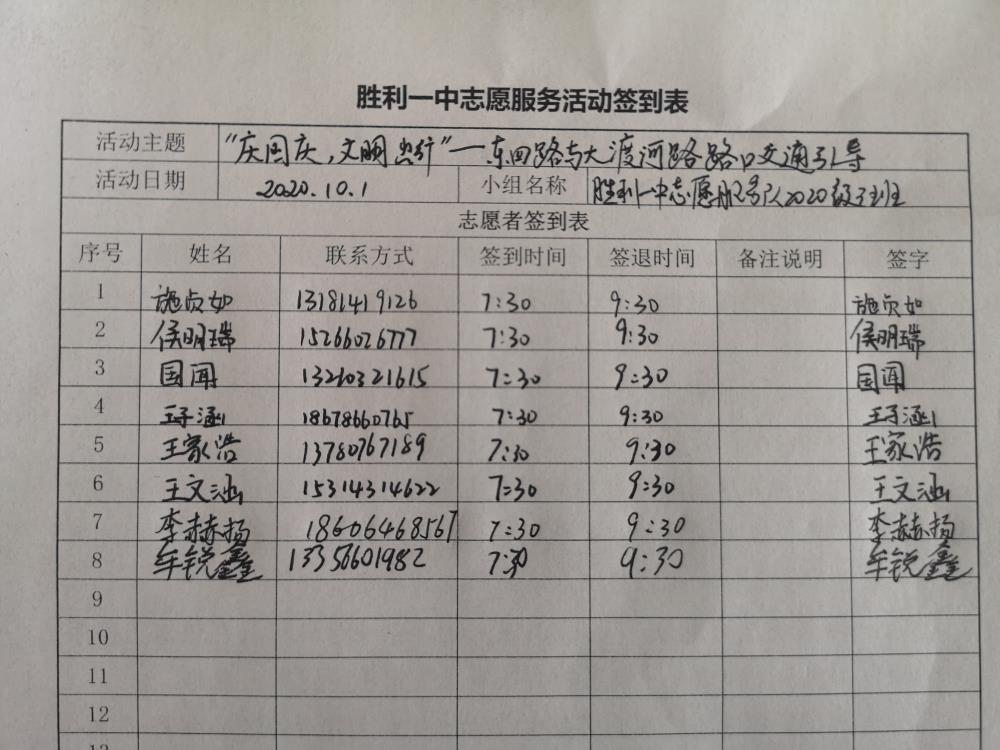 胜利一中志愿服务活动签到表
活动主题 "庆国庆,文明出行"—东四路与大渡河路路口交通引导
活动日期 2020.10.1 小组名称 胜利一中志愿服务队2020级3班
志愿者签到表
序号 姓名 联系方式 签到时间 签退时间 备注说明 签字
1 施贞如 13181419126 7:30 9:30 施贞如
2 侯明瑞 15266026777 7:30 9:30 侯明瑞
3 国闻 13210321615 7:30 9:30 国闻
4 王子涵 18678660765 7:30 9:30 王子涵
5 王家浩 13780767189 7:30 9:30 王家浩
6 王文涵 15314314622 7:30 9:30 王文涵
7 李赫扬 18606468567 7:30 9:30 李赫扬
8 牟锐鑫 13356601982 7:30 9:30 牟锐鑫
9
10
11
12